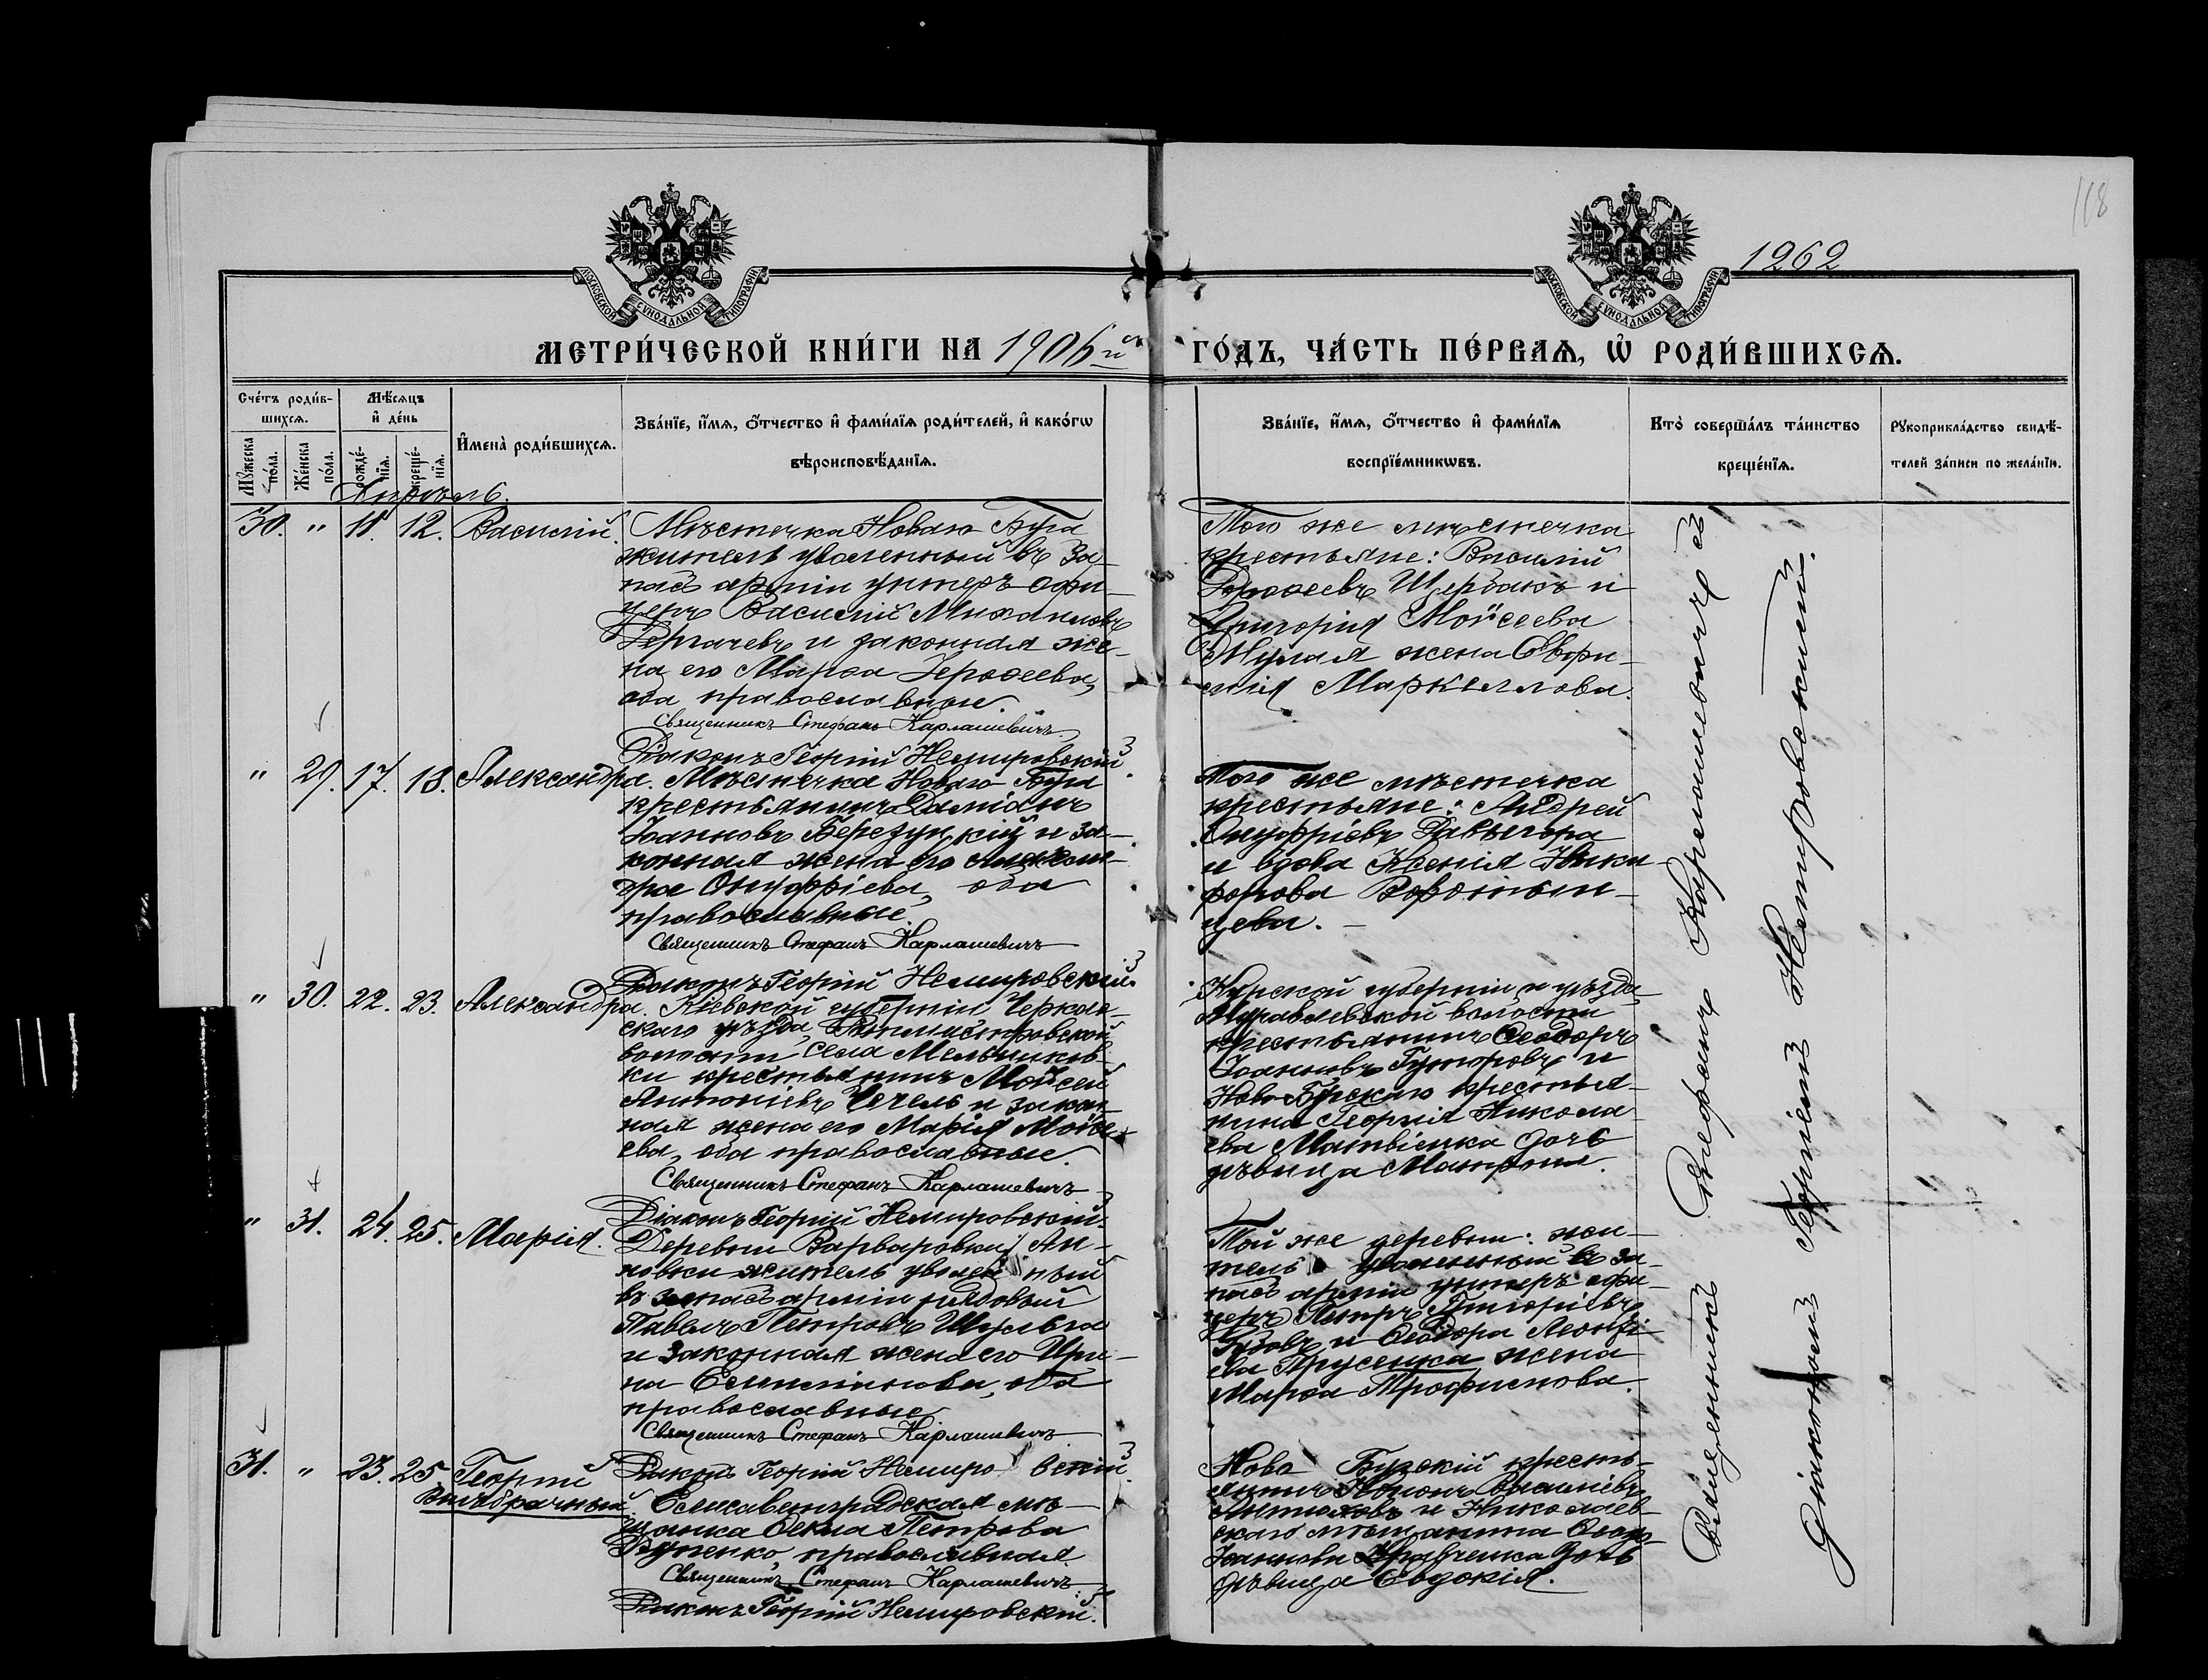 118
1262
МОСКОВСКОЙ СѴНОДАЛЬНОЙ ТИПОГРАФІИ
МОСКОВСКОЙ СѴНОДАЛЬНОЙ ТИПОГРАФІИ
МЕТРИ́ЧЕСКОЙ КНИ́ГИ НА 1906 й ГО́ДЪ, ЧА́СТЬ ПЕ́РВАѦ, Ѽ РОДИ́ВШИХСѦ.
Сче́тъ роди́в-
шихсѧ.
Мꙋ́жеска по́ла.
Же́нска по́ла.
Мѣ́сѧцъ
и҆ де́нь
рожде́-нїѧ.
креще́-нїѧ.
И҆мена̀ роди́вшихсѧ.
Зва́нїе, и҆́мѧ, ѻ҆́тчество и҆ фами́лїѧ роди́телей, и҆ како́гѡ
вѣроисповѣ́данїѧ.
Зва́нїе, и҆́мѧ, ѻ҆́тчество и҆ фами́лїѧ
воспрїе́мникѡвъ.
Кто̀ соверша́лъ та́инство
креще́нїѧ.
Рꙋкоприкла́дство свидѣ́-
телей за́писи по жела́нїю.
Апрѣль.
30. " 11. 12. Василій.
Мѣстечка Новаго Буга
житель уволенный въ За-
пасъ арміи унтеръ офи-
церъ Василій Михаиловъ
Дергачевъ и законная же-
на его Марѳа Іероѳеева,
оба православные.
Священникъ Стефанъ Карлашевичъ
Діаконъ Георгій Немировскій
Того же мѣстечка
крестьяне: Василій
Щербакъ и
Григорія Моѵсеева
жена Евфи-
мія Маркеллова.
" 29. 17. 18. Александра.
Мѣстечка Новаго Буга
крестьянинъ Даміанъ
Іоанновъ Березуцкій и за-
конная жена его Алексан-
дра Онуфріева, оба
православные.
Священникъ Стефанъ Карлашевичъ
Діаконъ Георгій Немировскій
Того же мѣстечка
крестьяне: Андрей
Онуфріевъ
и вдова Ксенія Ники-
форова
цева.
" 30. 22. 23. Александра.
Кіевской губерніи Черкас-
скаго уѣзда,
волости села Мельников-
ки крестьянинъ Моѵсей
Антоніевъ Чечель и закон-
ная жена его Марія Моѵсе-
ева, оба православные.
Священникъ Стефанъ Карлашевичъ
Діаконъ Георгій Немировскій
Курской губерніи и уѣзда,
волости
крестьянинъ Ѳеодоръ
Іоанновъ Гуторовъ и
Ново-Бугскаго крестья-
нина Георгія Никола-
ева Матвіенка дочь
дѣвица Матрона.
" 31. 24. 25. Марія.
Деревни Варваровки, Ан-
новки житель уволенный
въ запасъ арміи рядовый
Павелъ Петровъ Шульга
и законная жена его Ири-
на оба
православные
Священникъ Стефанъ Карлашевичъ
Діаконъ Георгій Немировскій
Той же деревни: жи-
тель уволенный въ за-
пасъ арміи унтеръ офи-
церъ Петръ Григоріевъ
и Ѳеодора Леонті-
ева Прусенка жена
Марѳа Трофимова.
31. " 23. 25. Георгій
Внѣбрачный
Елисаветградская мѣ-
щанка Ѳекла Петрова
православная.
Священникъ Стефанъ Карлашевичъ
Діаконъ Георгій Немировскій.
Ново Бугскій кресть-
янинъ
и Николаев-
скаго мѣщанина
Іоаннова Кравченка дочь
дѣвица Евдокія.
Священникъ Стефанъ Карлашевичъ съ
діакономъ Георгіемъ Немировскимъ.